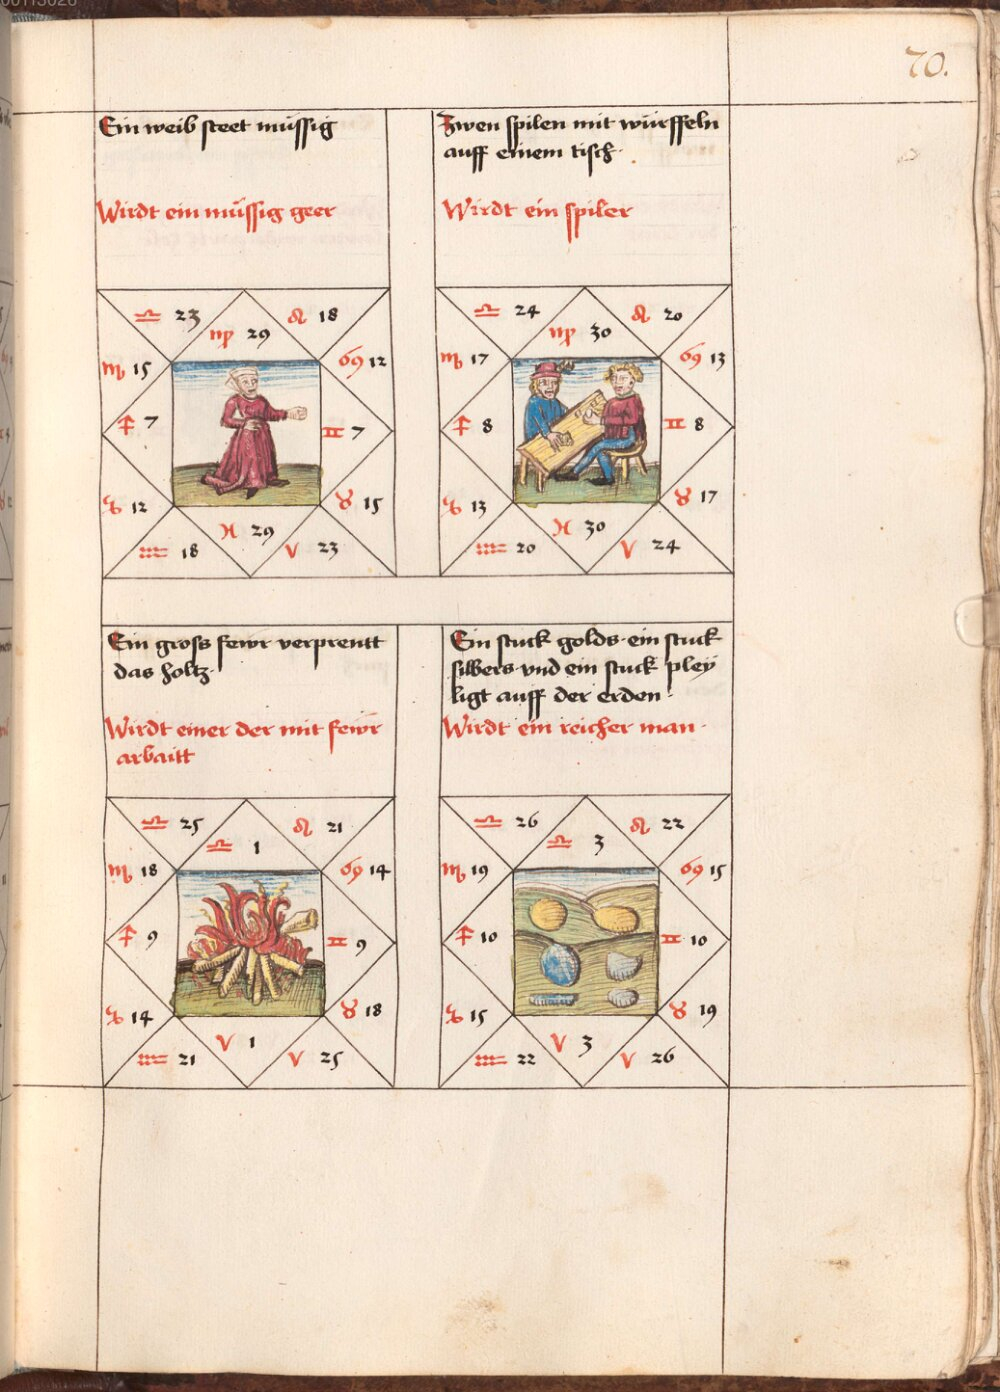 70.
Ein weib steet müssig
Wirdt ein müssig geer
♎ 23
♌ 18
♍ 29
♏ 15
♋ 12
♐ 7
♊ 7
♑ 12
♉ 15
♓ 29
♒ 18
♈ 23
Zwen spilen mit würffeln
auff einem tisch
Wirdt ein spiler
♎ 24
♌ 20
♍ 30
♏ 17
♋ 13
♐ 8
♊ 8
♑ 13
♉ 17
♓ 30
♒ 20
♈ 24
Ein gross fewr verprentt
das holtz
Wirdt einer der mit fewr
arbaitt
♎ 25
♌ 21
♎ 1
♏ 18
♋ 14
♐ 9
♊ 9
♑ 14
♉ 18
♈ 1
♒ 21
♈ 25
Ein stuck golds · ein stuck
silbers · vnd ein stuck pley
ligt auff der erden ·
Wirdt ein reicher man ·
♎ 26
♌ 22
♎ 3
♏ 19
♋ 15
♐ 10
♊ 10
♑ 15
♉ 19
♈ 3
♒ 22
♈ 26